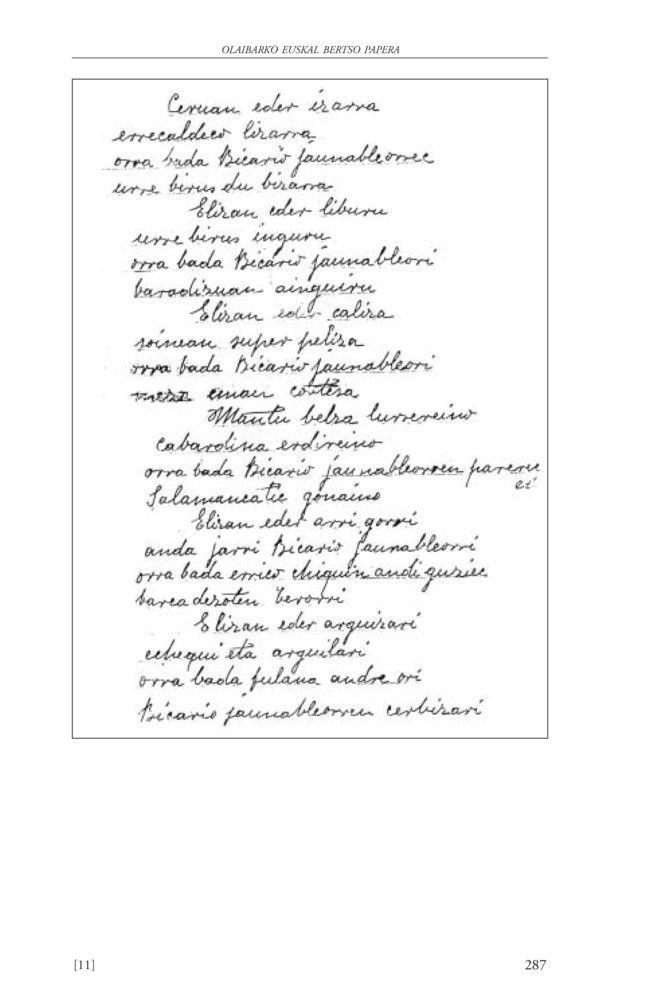 OLAIBARKO EUSKAL BERTSO PAPERA
Ceruan eder izarra
errecaldeco lizarra
orra bada Bicario jaunableorrec
urre birus du bizarra
Elizan eder liburu
urre birus inguru
orra bada Bicario jaunableori
baradizuan ainguiru
Elizan eder caliza
soinean super peliza
orra bada Bicario jaunableori
eman contesa
Mantu belza lurrereino
cabardina erdireino
orra bada Bicario jaunableorren pareric
ez
Salamancatic gonaino
Elizan eder arri gorri
anda jarri Bicario jaunableorri
orra bada errico chiquin andi guziec
barca dezoten berorri
Elizan eder arguizari
echequi eta arguilari
orra bada fulana andre ori
Bicario jaunableorren cerbizari
[11]
287